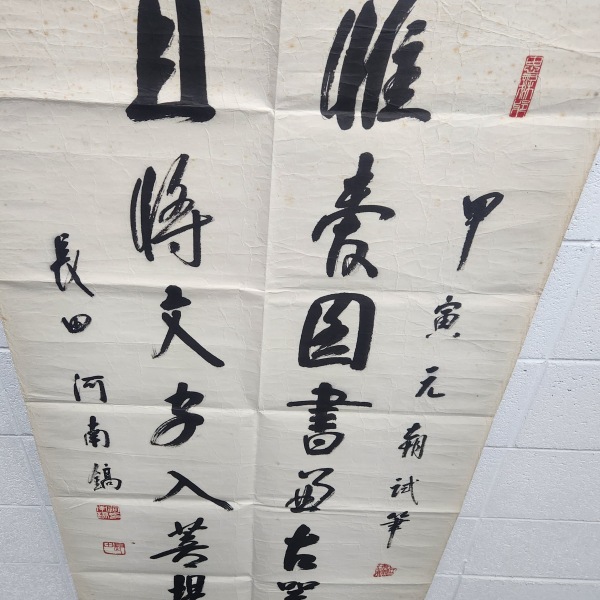 甲寅元朔試筆
惟愛圖書兼古器
且將文字入菩提
長田 河南鎬